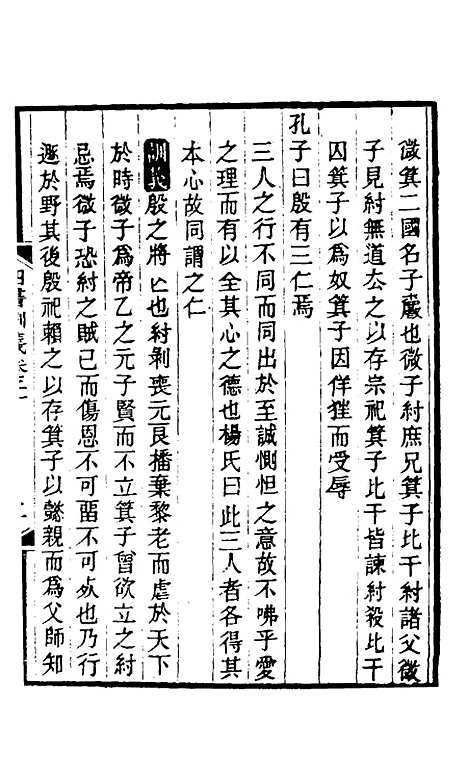 微箕二國名子爵也微子紂庶兄箕子比干紂諸父微
子見紂無道厺之以存宗祀箕子比干皆諫紂殺比干
囚箕子以爲奴箕子因佯狂而受辱
孔子曰殷有三仁焉
三人之行不同而同出於至誠惻怛之意故不咈乎愛
之理而有以全其心之德也楊氏曰此三人者各得其
本心故同謂之仁
訓義殷之將亾也紂剝喪元良播棄黎老而虐於天下
於時微子爲帝乙之元子賢而不立箕子曾欲立之紂
忌焉微子恐紂之賊己而傷恩不可畱不可处也乃行
遯於野其後殷祀賴之以存箕子以懿親而爲父師知
四書訓義卷二十